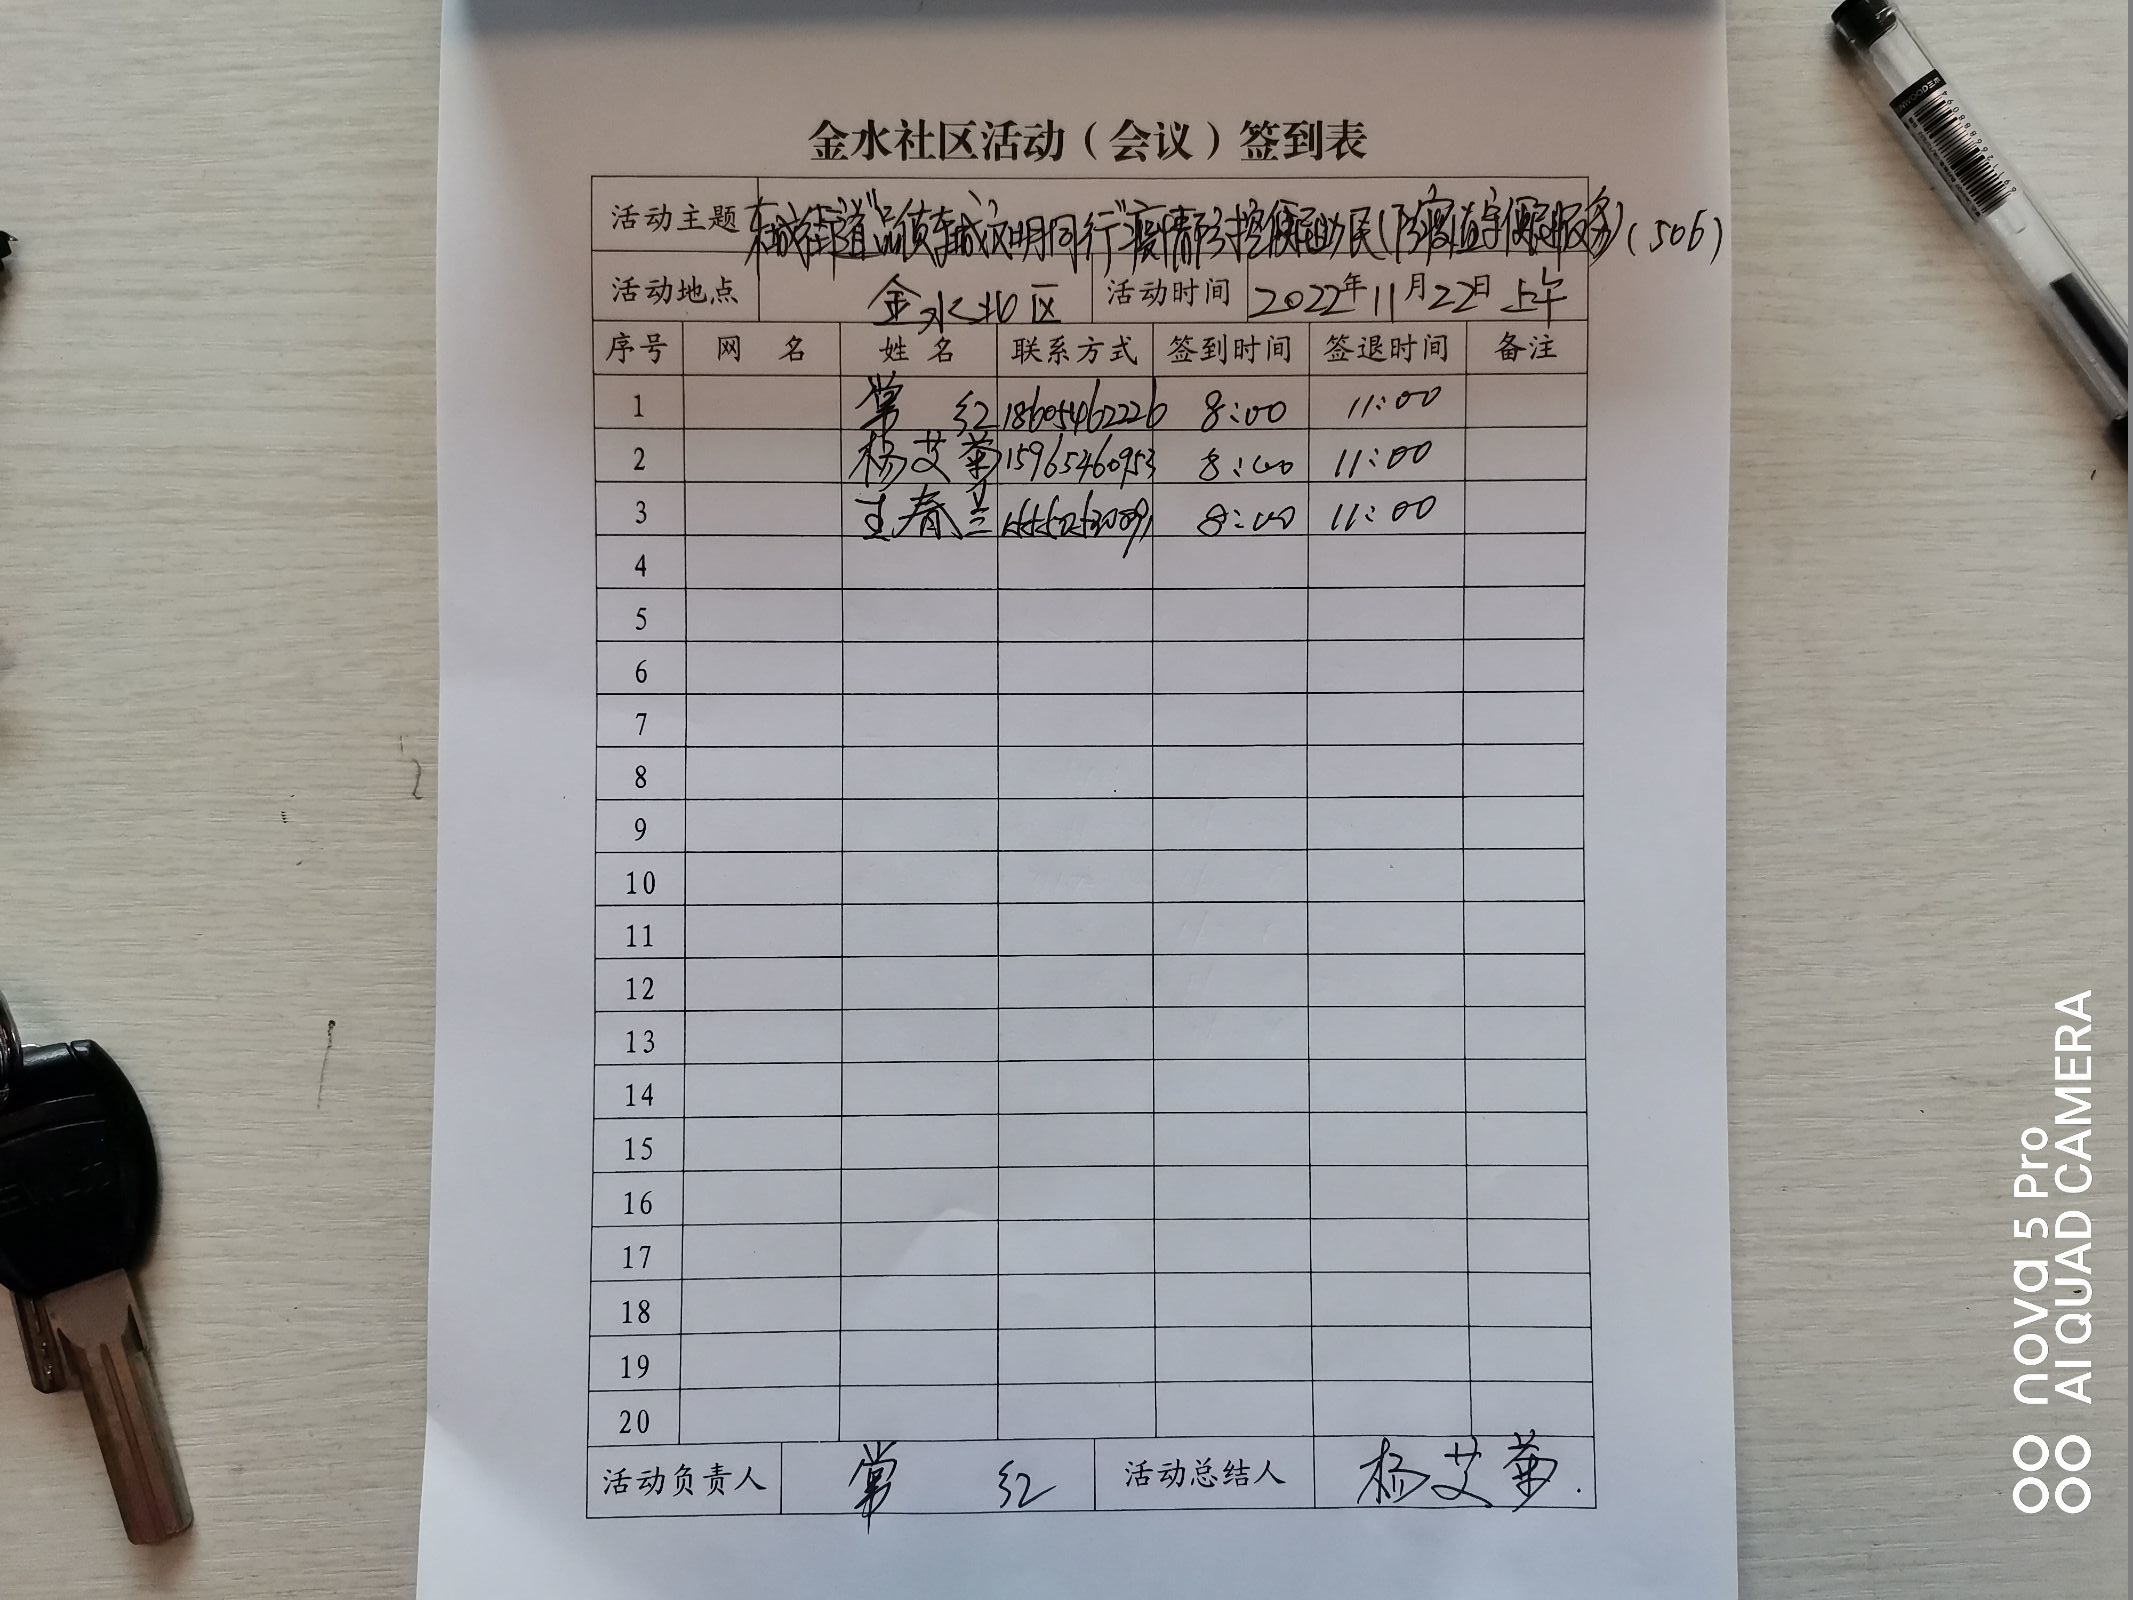 金水社区活动（会议）签到表
活动主题 东城街道"品质东城文明同行"疫情防控便民助民(防疫值守便民服务)(506)
活动地点 金水北区 活动时间 2022年11月22日上午
序号 网 名 姓 名 联系方式 签到时间 签退时间 备注
1 常 红 18605462226 8:00 11:00
2 杨艾菊 15965460953 8:00 11:00
3 王春兰 8:00 11:00
4
5
6
7
8
9
10
11
12
13
14
15
16
17
18
19
20
活动负责人 常 红 活动总结人 杨艾菊.
nova 5 Pro
AI QUAD CAMERA